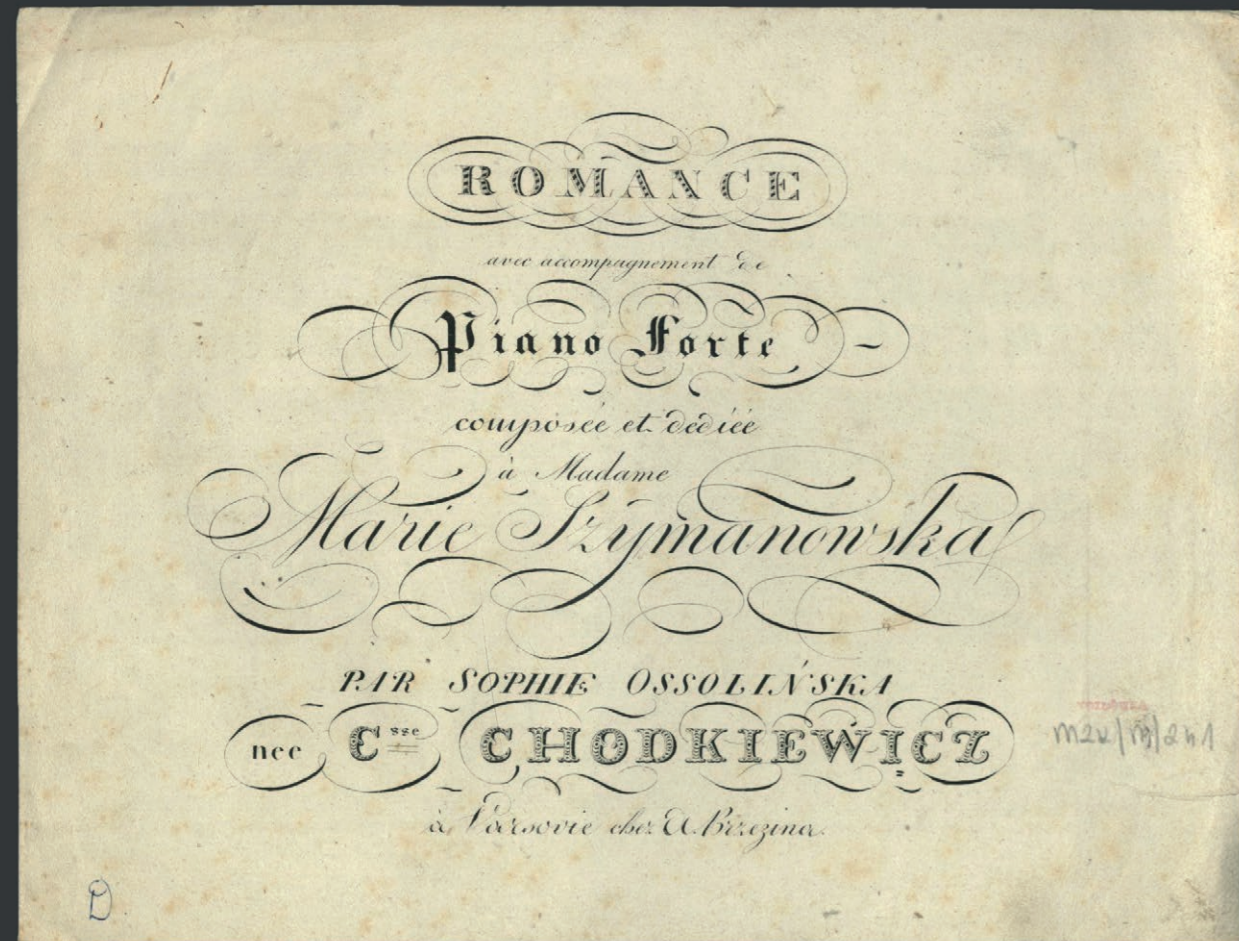 ROMANCE
avec accompagnement de
Piano Forte
composée et dediée
à Madame
Marie Szymanowska
PAR SOPHIE OSSOLIŃSKA
nee Csse CHODKIEWICZ
à Varsovie chez A. Brzezina.
D